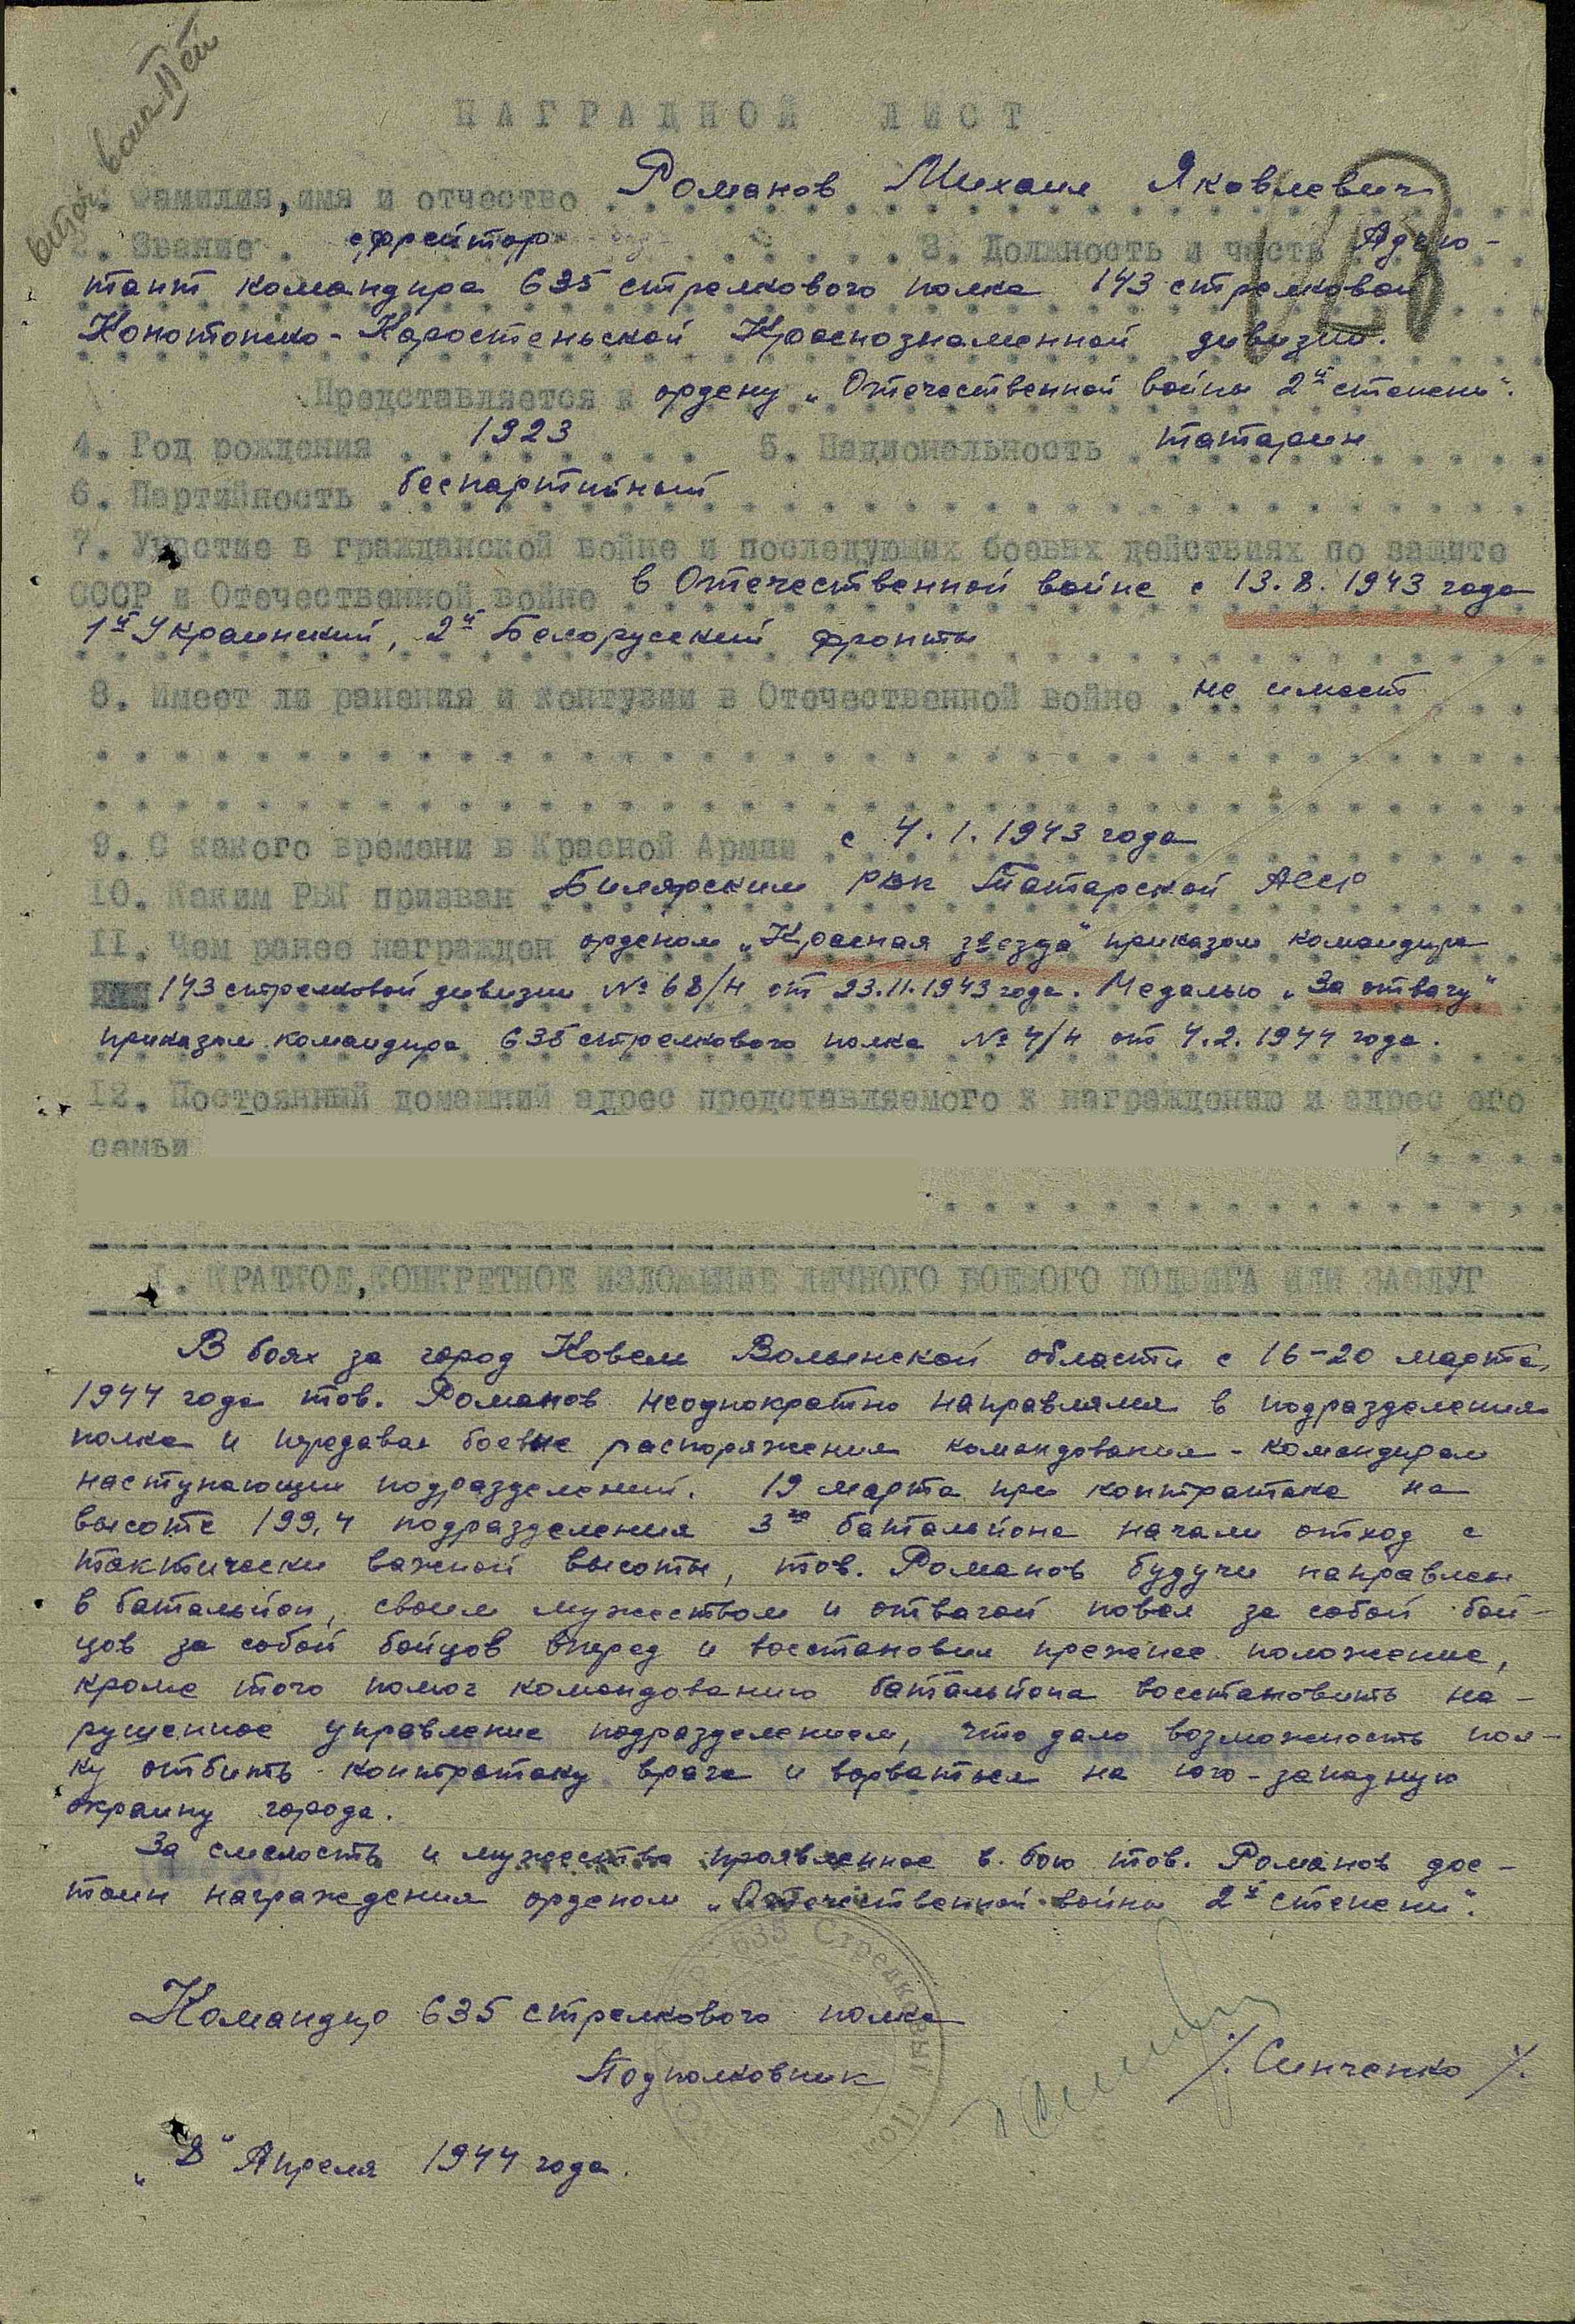 НАГРАДНОЙ ЛИСТ
1. Фамилия, имя и отчество Романов Михаил Яковлевич
2. Звание . ефрейтор 3. Должность и часть Адъю-
тант командира 635 стрелкового полка 143 стрелковой
Конотопско-Коростеньской Краснознаменной дивизии.
Представляется к ордену „Отечественной войны 2й степени".
4. Год рождения 1923 5. Национальность татарин
6. Партийность беспартийный
7. Участие в гражданской войне и последующих боевых действиях по защите
СССР и Отечественной войне в Отечественной войне с 13.8.1943 года
1й Украинский, 2й Белорусский фронты
8. Имеет ли ранения и контузии в Отечественной войне не имеет
9. С какого времени в Красной Армии с 4.1.1943 года
10. Каким РВК призван Билярским РВК Татарской АССР
11. Чем ранее награжден орденом „Красная звезда" приказом командира
143 стрелковой дивизии № 68/н от 23.11.1943 года. Медалью „За отвагу"
приказом командира 635 стрелкового полка № 4/н от 4.2.1944 года.
12. Постоянный домашний адрес представляемого к награждению и адрес его
семьи
I. КРАТКОЕ, КОНКРЕТНОЕ ИЗЛОЖЕНИЕ ЛИЧНОГО БОЕВОГО ПОДВИГА ИЛИ ЗАСЛУГ
В боях за город Ковель Волынской области с 16-20 марта
1944 года тов. Романов неоднократно направлялся в подразделения
полка и передавал боевые распоряжения командования - командирам
наступающих подразделений. 19 марта при контратаке на
высоте 199,4 подразделения 3го батальйона начали отход с
тактически важной высоты, тов. Романов будучи направлен
в батальйон, своим мужеством и отвагой повел за собой бой-
цов за собой бойцов вперед и восстановил прежнее положение,
кроме того помог командованию батальйона восстановить на-
рушенное управление подразделением, что дало возможность пол-
ку отбить контратаку врага и ворваться на юго-западную
окраину города.
За смелость и мужество проявленное в бою тов. Романов дос-
тоин награждения орденом „Отечественной войны 2й степени".
Командир 635 стрелкового полка
Подполковник /. Синченко /.
„8" Апреля 1944 года.
635 Стрелковый Пол